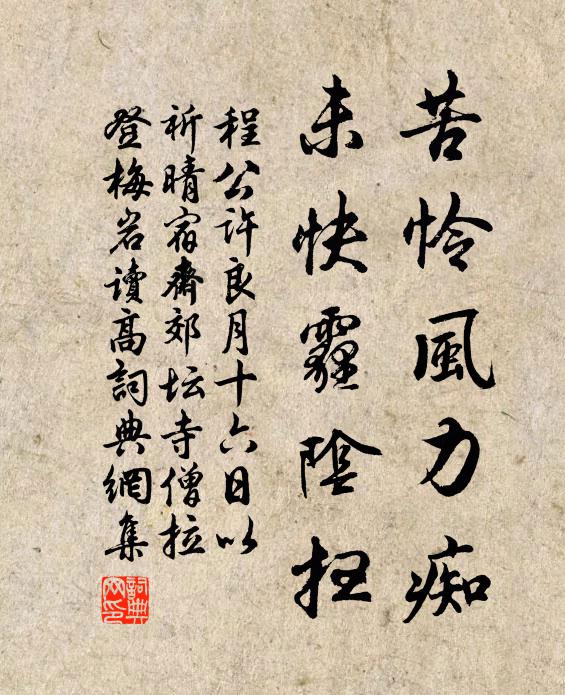 苦怜風力痴
未快霾陰扫
程公许良月十六日以
祈晴宿齋郊坛寺僧拉
登梅岩读高詞典網集
詞典网印